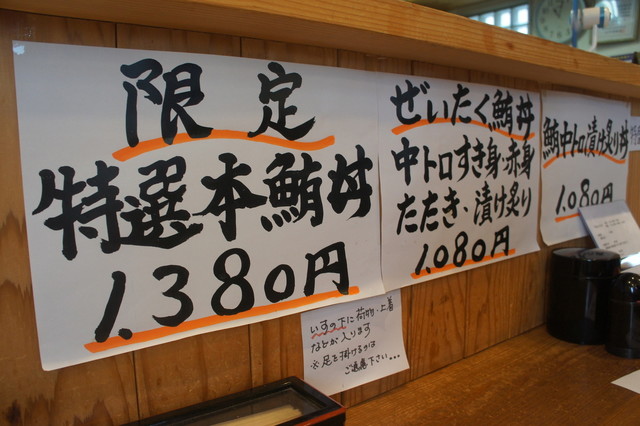 限定
特選本鮪丼
1.380円
ぜいたく鮪丼
中トロすき身、赤身
たたき、漬け炙り
1.080円
鮪中トロ漬け炙り丼
1.080円
いすの下に荷物・上着
などが入ります
※足を掛けるのは
ご遠慮下さい...